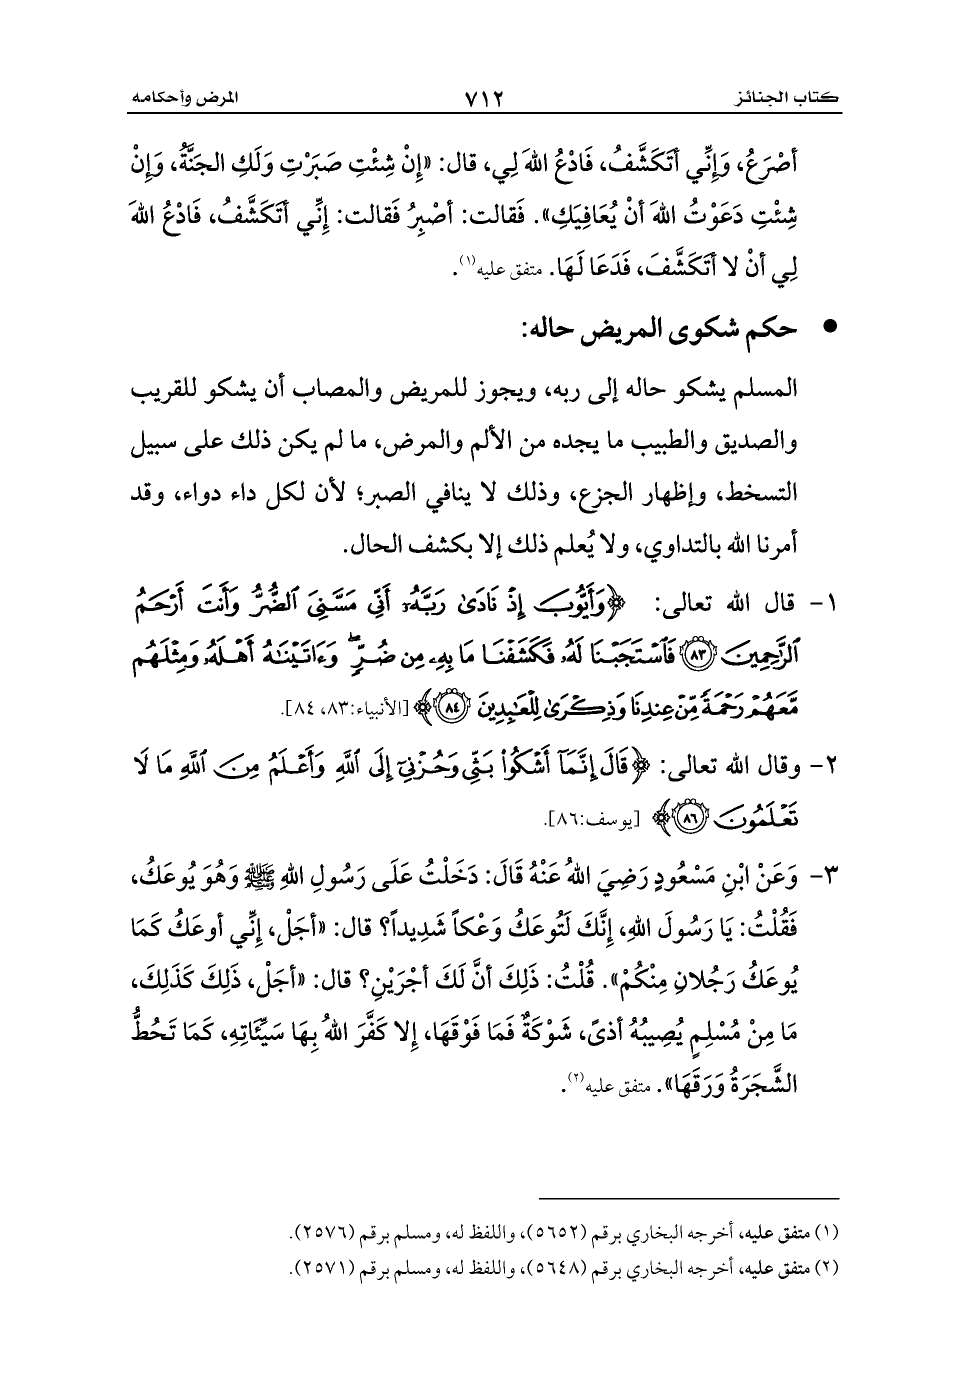 كتاب الجنائز ٧١٢ المرض وأحكامه
أصْرَعُ، وَإنِّي أتَكَشَّفُ، فَادْعُ اللهَ لِي، قال: «إنْ شِئْتِ صَبَرْتِ وَلَكِ الجَنَّةُ، وَإنْ
شِئْتِ دَعَوْتُ اللهَ أنْ يُعَافِيَكِ». فَقالت: أصْبِرُ فَقالت: إنِّي أتَكَشَّفُ، فَادْعُ اللهَ
لِي أنْ لا أتَكَشَّفَ، فَدَعَا لَهَا. متفق عليه(١).
● حكم شكوى المريض حاله:
المسلم يشكو حاله إلى ربه، ويجوز للمريض والمصاب أن يشكو للقريب
والصديق والطبيب ما يجده من الألم والمرض، ما لم يكن ذلك على سبيل
التسخط، وإظهار الجزع، وذلك لا ينافي الصبر؛ لأن لكل داء دواء، وقد
أمرنا الله بالتداوي، ولا يُعلم ذلك إلا بكشف الحال.
١- قال الله تعالى: ﴿وَأَيُّوبَ إِذْ نَادَىٰ رَبَّهُۥٓ أَنِّي مَسَّنِيَ ٱلضُّرُّ وَأَنتَ أَرْحَمُ
ٱلرَّٰحِمِينَ ٨٣ فَٱسْتَجَبْنَا لَهُۥ فَكَشَفْنَا مَا بِهِۦ مِن ضُرٍّۖ وَءَاتَيْنَٰهُ أَهْلَهُۥ وَمِثْلَهُم
مَّعَهُمْ رَحْمَةً مِّنْ عِندِنَا وَذِكْرَىٰ لِلْعَٰبِدِينَ ٨٤﴾ [الأنبياء:٨٣، ٨٤].
٢- وقال الله تعالى: ﴿قَالَ إِنَّمَآ أَشْكُوا۟ بَثِّي وَحُزْنِيٓ إِلَى ٱللَّهِ وَأَعْلَمُ مِنَ ٱللَّهِ مَا لَا
تَعْلَمُونَ ٨٦﴾ [يوسف:٨٦].
٣- وَعَنْ ابْنِ مَسْعُودٍ رَضِيَ اللهُ عَنْهُ قَالَ: دَخَلْتُ عَلَى رَسُولِ اللهِ ﷺ وَهُوَ يُوعَكُ،
فَقُلْتُ: يَا رَسُولَ اللهِ، إنَّكَ لَتُوعَكُ وَعْكاً شَدِيداً؟ قال: «أجَلْ، إنِّي أوعَكُ كَمَا
يُوعَكُ رَجُلانِ مِنْكُمْ». قُلْتُ: ذَلِكَ أنَّ لَكَ أجْرَيْنِ؟ قال: «أجَلْ، ذَلِكَ كَذَلِكَ،
مَا مِنْ مُسْلِمٍ يُصِيبُهُ أذىً، شَوْكَةٌ فَمَا فَوْقَهَا، إلا كَفَّرَ اللهُ بِهَا سَيِّئَاتِهِ، كَمَا تَحُطُّ
الشَّجَرَةُ وَرَقَهَا». متفق عليه(٢).
(١) متفق عليه، أخرجه البخاري برقم (٥٦٥٢)، واللفظ له، ومسلم برقم (٢٥٧٦).
(٢) متفق عليه، أخرجه البخاري برقم (٥٦٤٨)، واللفظ له، ومسلم برقم (٢٥٧١).